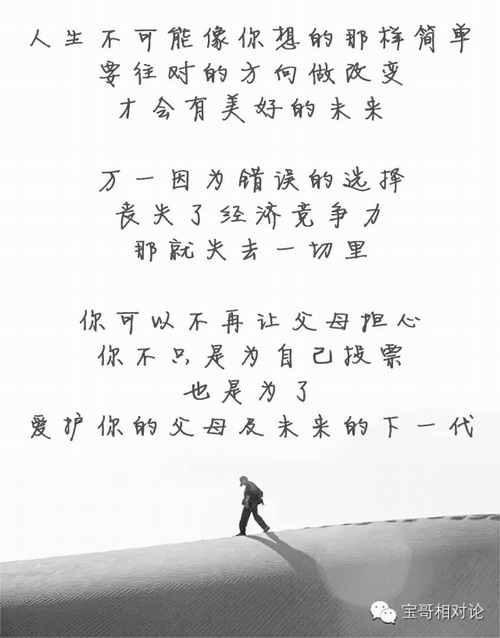 人生不可能像你想的那样简单
要往对的方向做改变
才会有美好的未来
万一因为错误的选择
丧失了经济竞争力
那就失去一切里
你可以不再让父母担心
你不只是为自己投票
也是为了
爱护你的父母及未来的下一代
宝哥相对论